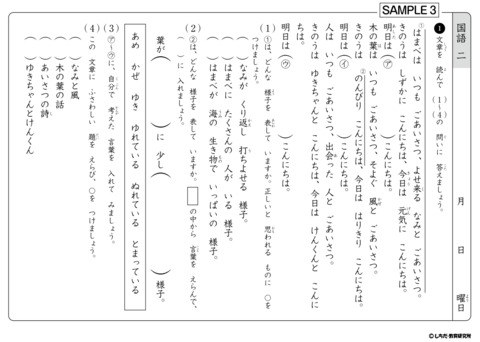 SAMPLE 3
国語 二
月 日 曜日
❶ 文章を 読んで (1)~(4)の 問いに 答えましょう。
①はまべは いつも ごあいさつ、よせ来る なみと ごあいさつ。
きのうは しずかに こんにちは、今日は 元気に こんにちは。
明日は( ㋐ )こんにちは。
木の葉は いつも ごあいさつ、そよぐ 風と ごあいさつ。
きのうは ②のんびり こんにちは、今日は はりきり こんにちは。
明日は( ㋑ )こんにちは。
人は いつも ごあいさつ、出会った 人と ごあいさつ。
きのうは ゆきちゃんと こんにちは、今日は けんくんと こんに
ちは。
明日は( ㋒ )こんにちは。
(1) ①は、どんな 様子を 表して いますか。正しいと 思われる ものに ○を
つけましょう。
( )なみが くり返し 打ちよせる 様子。
( )はまべに たくさんの 人が いる 様子。
( )はまべが 海の 生き物で いっぱいの 様子。
(2) ②は、どんな 様子を 表して いますか。□の中から 言葉を えらんで、
( )に 入れましょう。
葉が( )に 少し( )様子。
あめ かぜ ゆき ゆれている ぬれている とまっている
(3) ㋐~㋒に、自分で 考えた 言葉を 入れて みましょう。
(4) この 文章に ふさわしい 題を えらび、○を つけましょう。
( )なみと風
( )木の葉の話
( )あいさつの詩
( )ゆきちゃんとけんくん
©しちだ・教育研究所